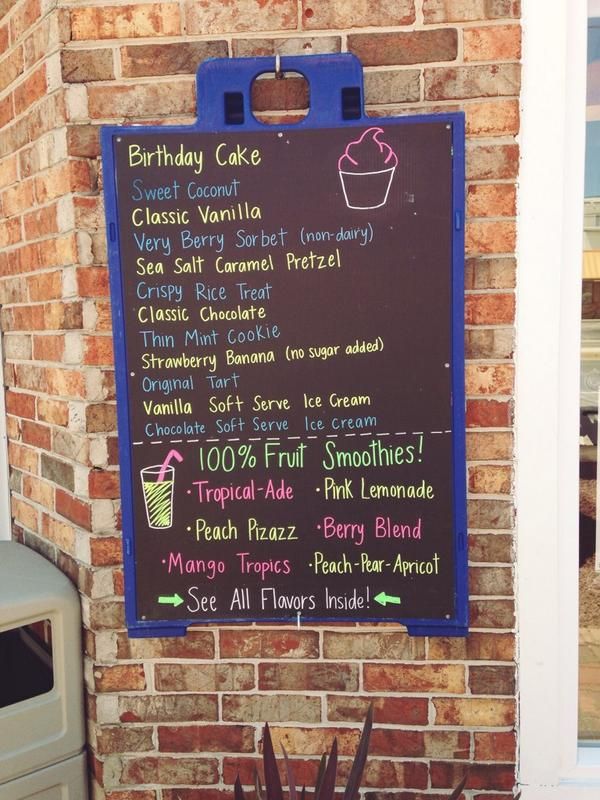 Birthday Cake
Sweet Coconut
Classic Vanilla
Very Berry Sorbet (non-dairy)
Sea Salt Caramel Pretzel
Crispy Rice Treat
Classic Chocolate
Thin Mint Cookie
Strawberry Banana (no sugar added)
Original Tart
Vanilla Soft Serve Ice Cream
Chocolate Soft Serve Ice cream
100% Fruit Smoothies!
•Tropical-Ade •Pink Lemonade
•Peach Pizazz •Berry Blend
•Mango Tropics •Peach-Pear-Apricot
See All Flavors Inside!